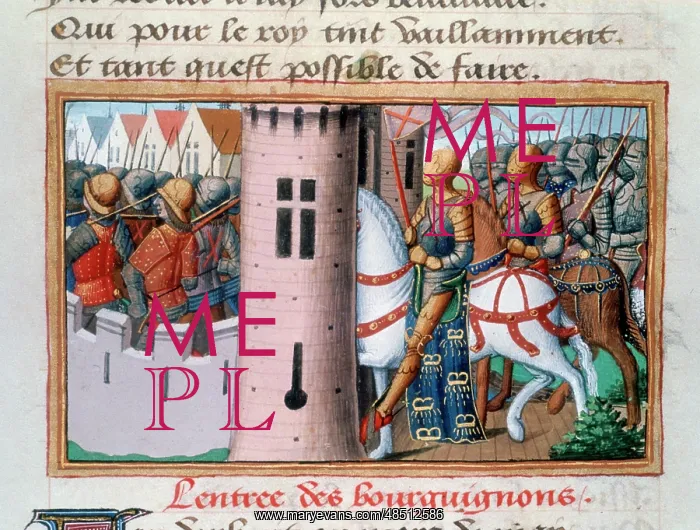 Qui pour le roy tint vaillamment.
Et tant quest possible de faire.
ME
PL
ME
PL
Lentree des bourguignons
www.maryevans.com/48512586